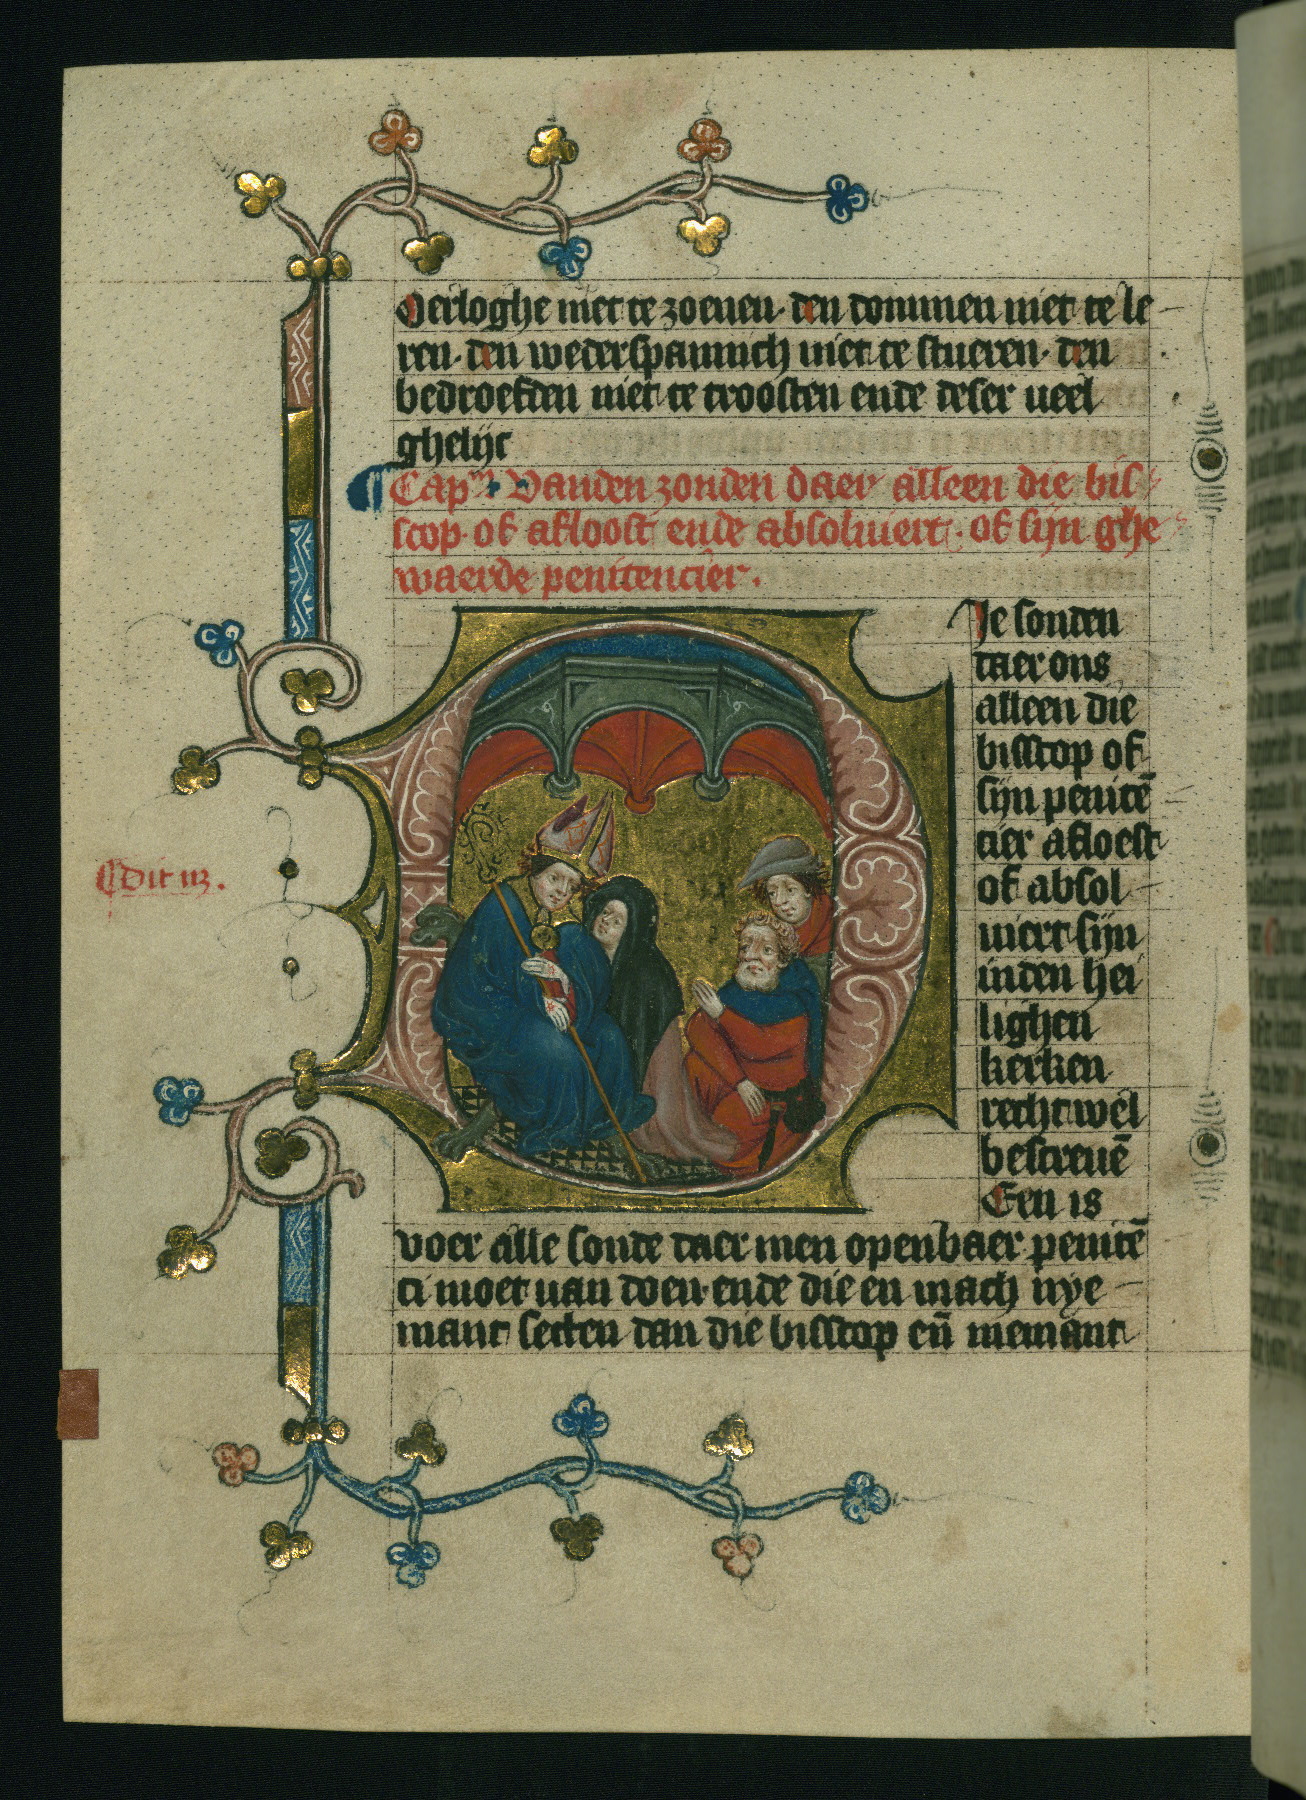 Oerloghe niet te zoenen· den dommen niet te le
ren· den wederspannich niet te stueren· den
bedroefden niet te troosten ende deser ueel
ghelijc
Capᵐ· Vanden zonden daer alleen die bis
scop· of afloost ende absoluiert· of sijn ghe
waerde penitencier.
Ie sonden
daer ons
alleen die
bisscop of
sijn penitē
cier afloest
of absol
uiert sijn
inden hei
lighen
kerken
recht wel
bescreuē
Een is
voer alle sonde daer men openbaer penitē
ci moet uan doen· ende die en mach nye
mant setten dan die bisscop eñ niemant